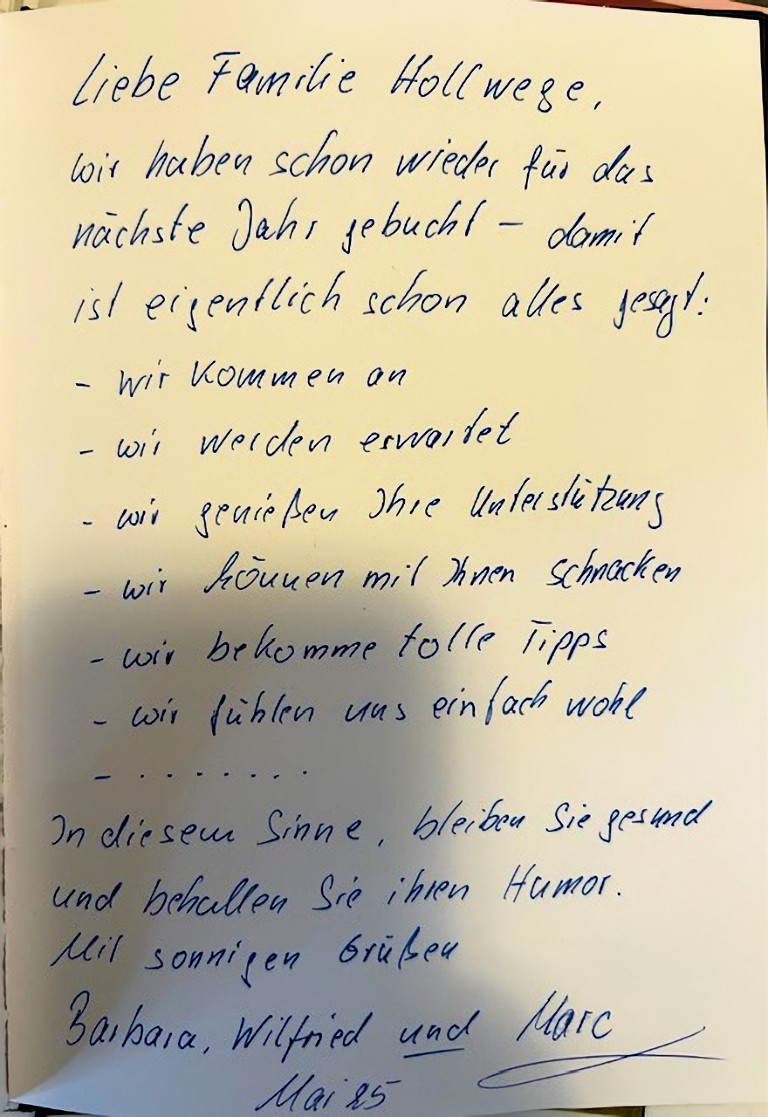 Liebe Familie Hollwege,
wir haben schon wieder für das
nächste Jahr gebucht – damit
ist eigentlich schon alles gesagt:
- wir kommen an
- wir werden erwartet
- wir genießen Ihre Unterstützung
- wir können mit Ihnen schnacken
- wir bekomme tolle Tipps
- wir fühlen uns einfach wohl
- ........
In diesem Sinne, bleiben Sie gesund
und behalten Sie ihren Humor.
Mit sonnigen Grüßen
Barbara, Wilfried und Marc
Mai 25